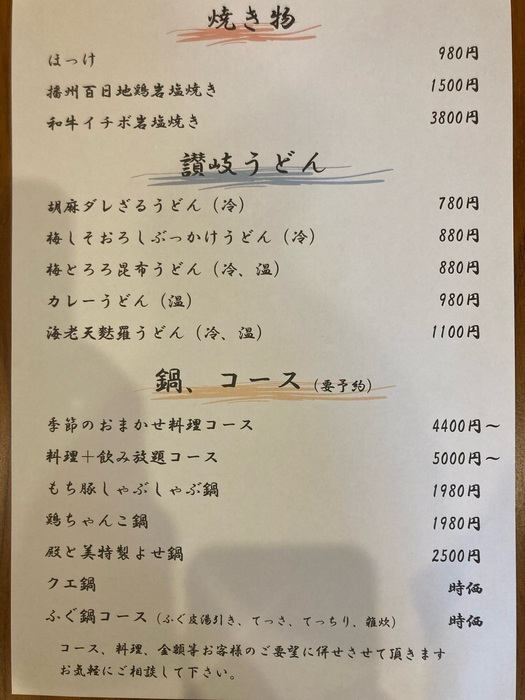 焼き物
ほっけ 980円
播州百日地鶏岩塩焼き 1500円
和牛イチボ岩塩焼き 3800円
讃岐うどん
胡麻ダレざるうどん（冷） 780円
梅しそおろしぶっかけうどん（冷） 880円
梅とろろ昆布うどん（冷、温） 880円
カレーうどん（温） 980円
海老天麩羅うどん（冷、温） 1100円
鍋、コース（要予約）
季節のおまかせ料理コース 4400円～
料理＋飲み放題コース 5000円～
もち豚しゃぶしゃぶ鍋 1980円
鶏ちゃんこ鍋 1980円
殿と美特製よせ鍋 2500円
クエ鍋 時価
ふぐ鍋コース（ふぐ皮湯引き、てっさ、てっちり、雑炊） 時価
コース、料理、金額等お客様のご要望に併せさせて頂きます
お気軽にご相談して下さい。